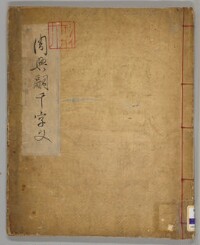 周興嗣千字文